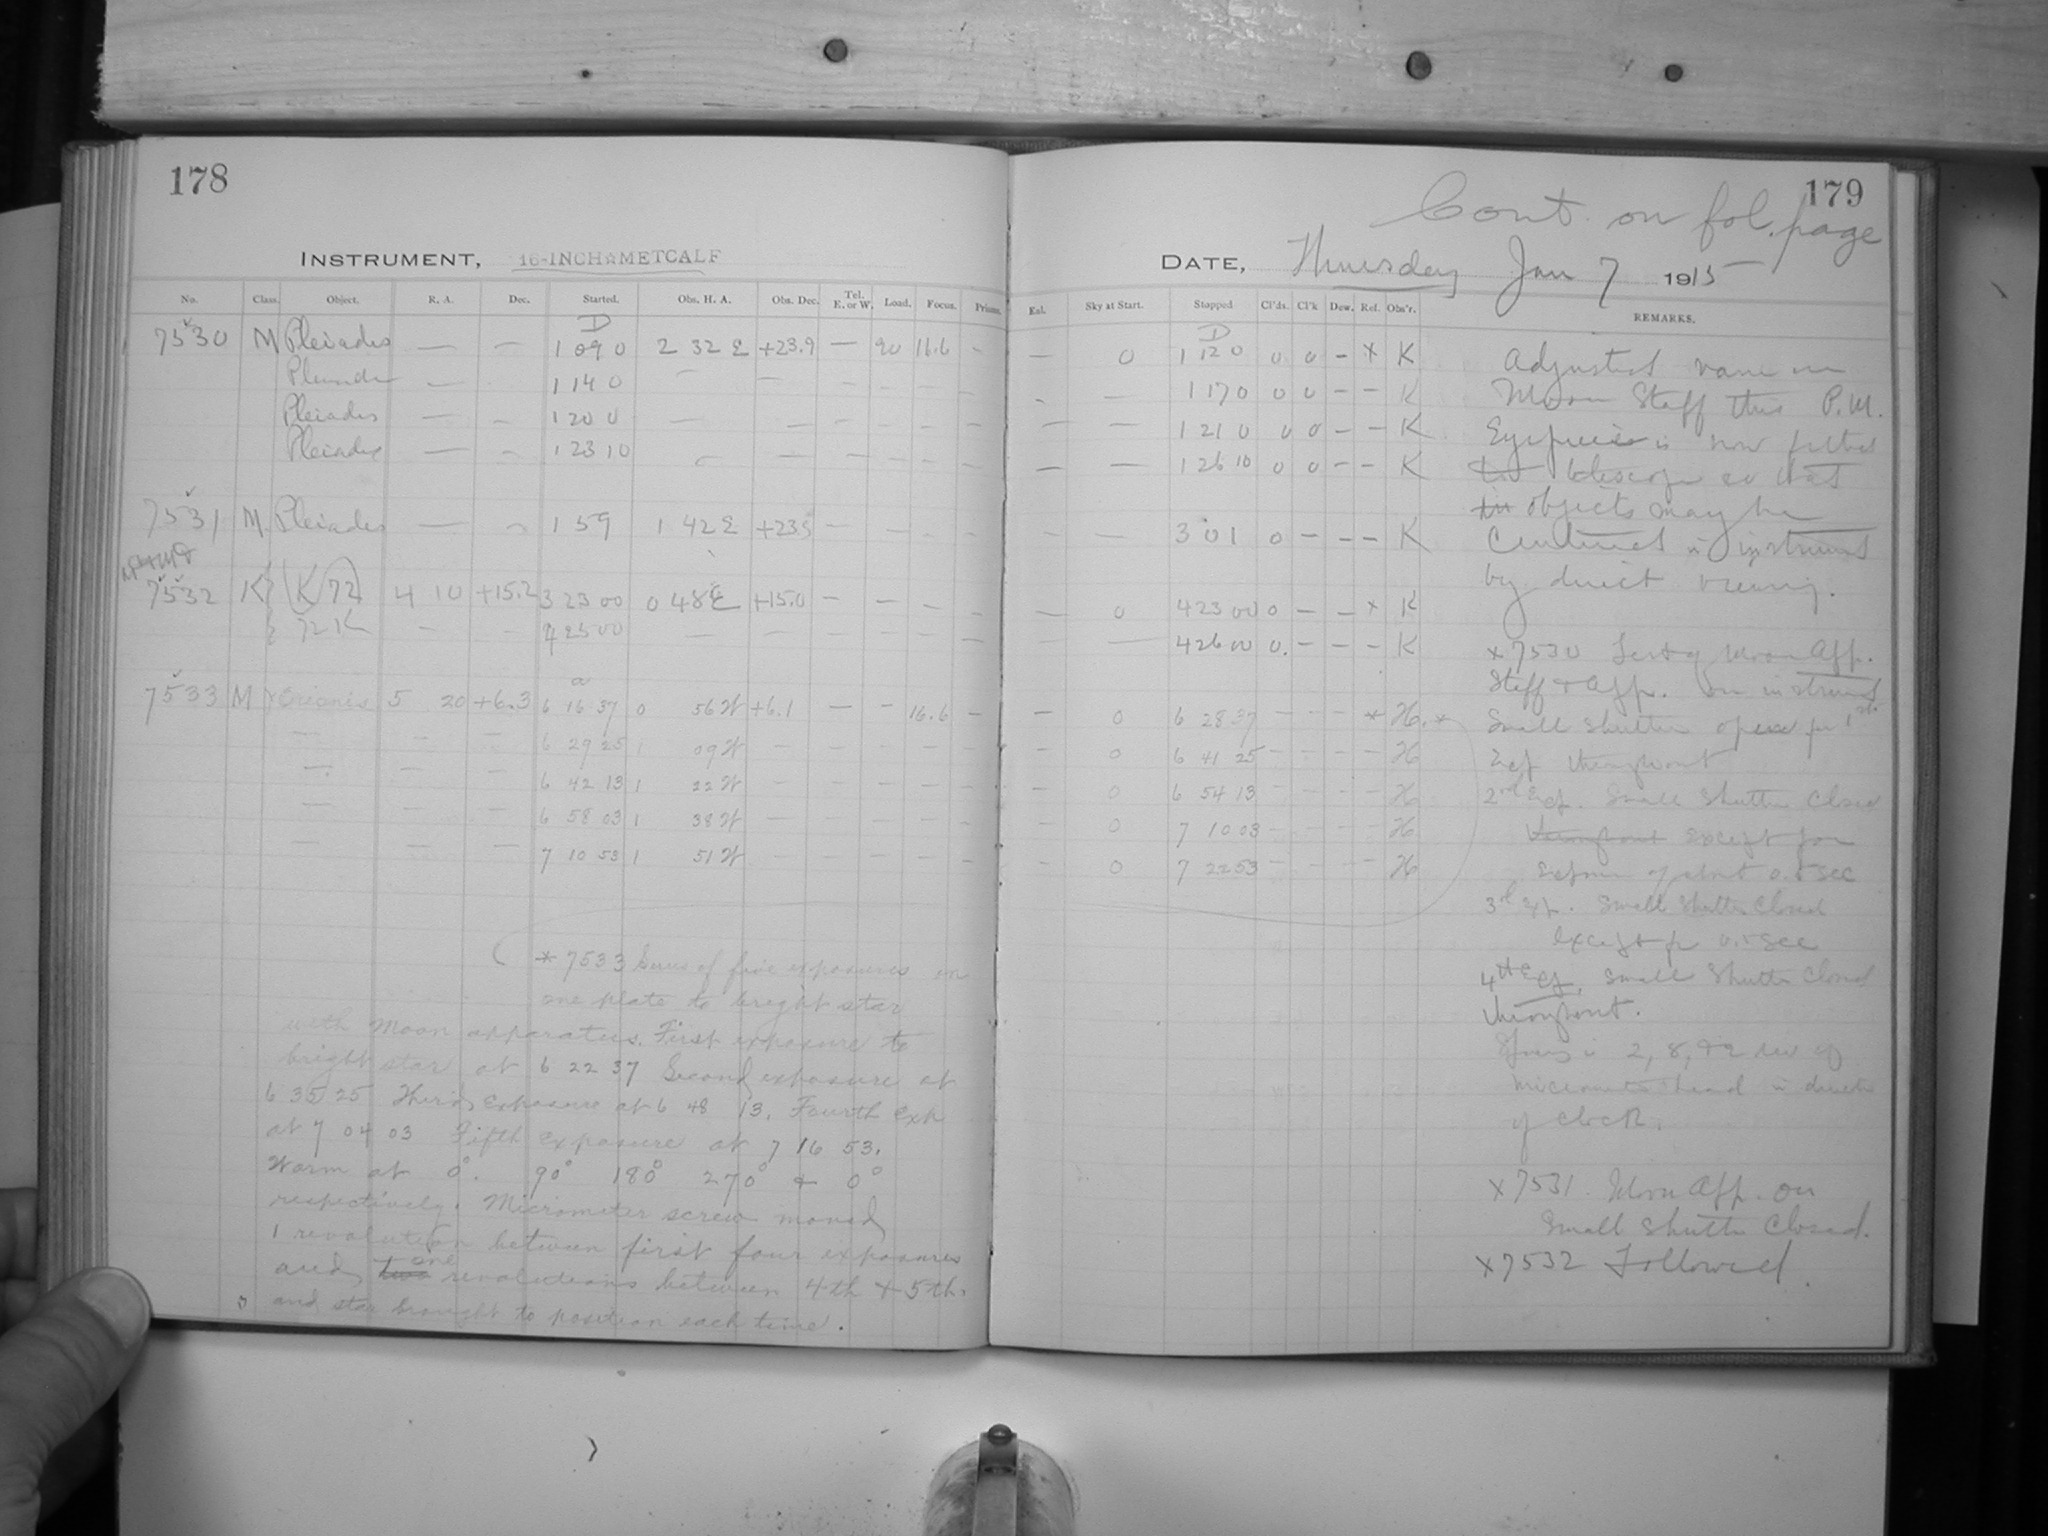 178
INSTRUMENT, 16-INCH METCALF
No. Class. Object. R. A. Dec. Started. Obs. H. A. Obs. Dec. Tel. E. or W. Load. Focus. Prisms.
D
7530 M Pleiades — — 1 09 0 2 32 E +23.9 — 90 16.6 -
Pleiades — 1 14 0
Pleiades — - 1 20 0
Pleiades — - 1 23 10
7531 M Pleiades — 1 59 1 42 E +23.5 — —
7532 K K 72 4 10 +15.2 3 23 00 0 48 E +15.0 — —
72 K — — 4 25 00
a
7533 M γ Orionis 5 20 +6.3 6 16 37 0 56 W +6.1 — — 16.6 —
— — — 6 29 25 1 09 W
— — — 6 42 13 1 22 W
— — — 6 58 03 1 38 W
— — — 7 10 53 1 51 W
* 7533 Series of five exposures on
one plate to bright star
with Moon apparatus. First exposure to
bright star at 6 22 37 Second exposure at
6 35 25 Third exposure at 6 48 13. Fourth exp
at 7 04 03 Fifth exposure at 7 16 53.
Warm at 0°. 90° 180° 270° + 0°
respectively. Micrometer screw moved
1 revolution between first four exposures
and two one revolutions between 4th + 5th.
and star brought to position each time.
179
Cont. on fol. page
DATE, Thursday Jan 7 1915
Exl. Sky at Start. Stopped Cl'ds. Cl'k Dew. Rel. Obs'r. REMARKS.
D
— 0 1 12 0 0 0 — x K
- — 1 17 0 0 0 — — K
— — 1 21 0 0 0 — — K
— — 1 26 10 0 0 — — K
3 01 0 — — — K
— 0 4 23 00 0 — — x K
— 4 26 00 0. — — — K
— 0 6 28 37 — — — * H. *
— 0 6 41 25 — — — — H
— 0 6 54 13 — — — — H
— 0 7 10 03 — — — — H
— 0 7 22 53 — — — — H
Adjusted vane on
Moon Staff this P.M.
Eyepiece is now fitted
to telescope so that
in objects may be
Centered in instrument
by direct viewing.
x 7530 Test of Moon App.
Staff + App. on instrument
Small shutter open for 1st
Exp throughout
2nd Exp. Small Shutter Closed
throughout except for
Expos of about 0.5 sec
3rd Exp. Small Shutter Closed
except for 0.5 sec
4th Exp. Small Shutter Closed
throughout.
2, 8, +2 rev of
micrometer head in direction
of clock.
x 7531 Moon App. on
Small Shutter Closed.
x 7532 Followed.